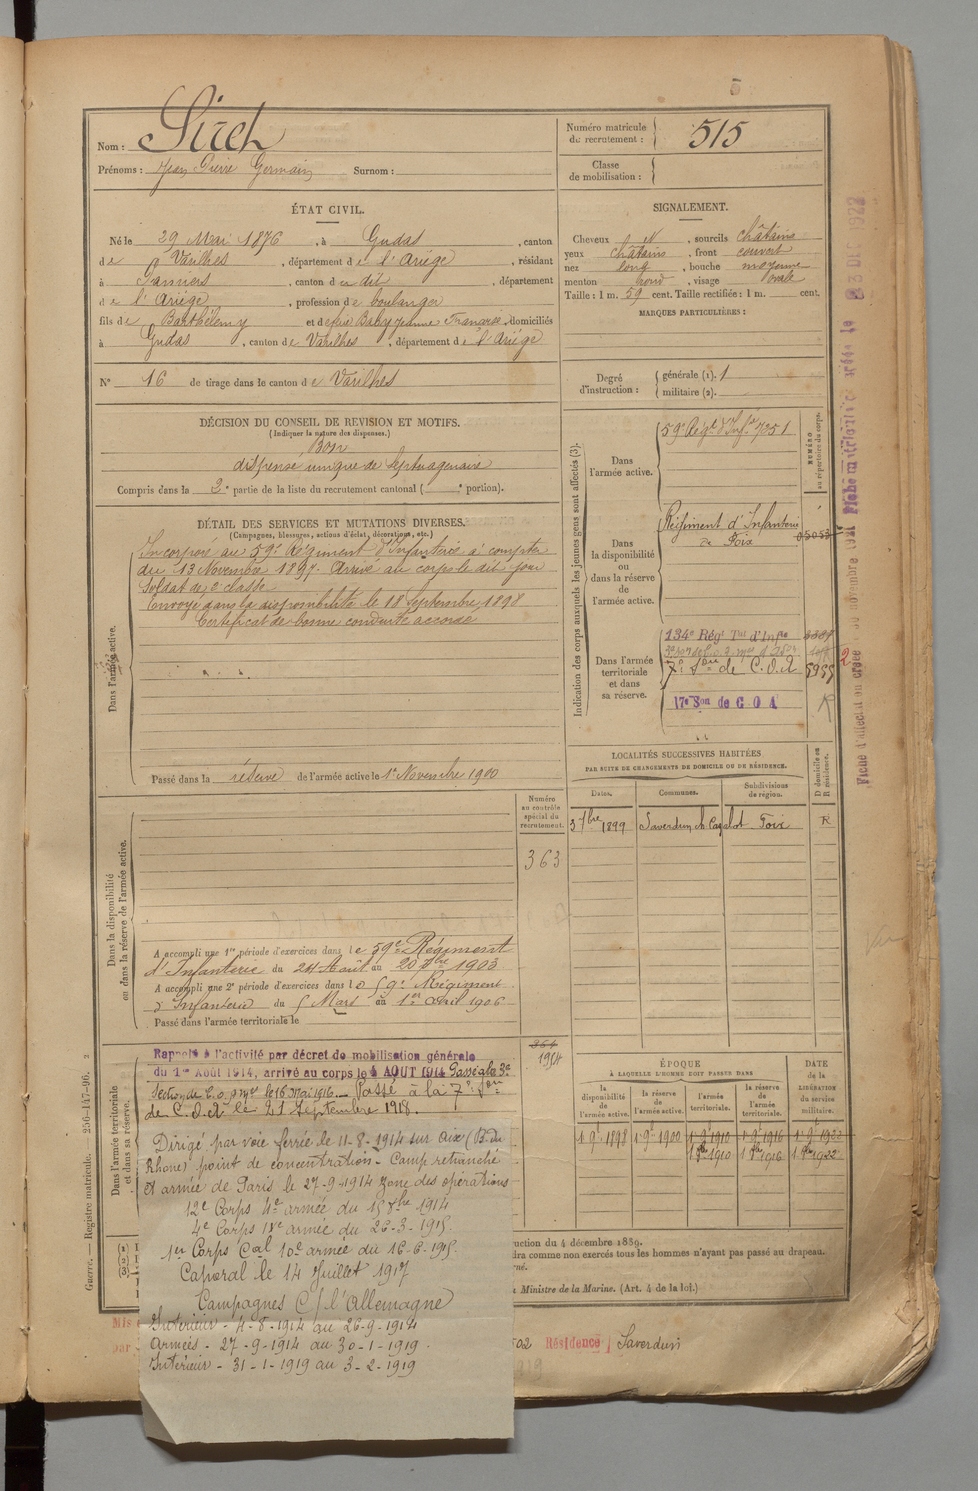 5
Nom : Sirch
Prénoms : Jean Pierre Germain Surnom :
Numéro matricule du recrutement : 515
Classe de mobilisation :
ÉTAT CIVIL.
Né le 29 Mai 1876, à Gudas, canton
de Varilhes, département de l'Ariège, résidant
à Pamiers, canton du dit, département
de l'Ariège, profession de boulanger
fils de Barthélemy et de feue Baby Jeanne Françoise, domiciliés
à Gudas, canton de Varilhes, département de l'Ariège
N° 16 de tirage dans le canton de Varilhes
SIGNALEMENT.
Cheveux N, sourcils châtains
yeux châtains, front couvert
nez long, bouche moyenne
menton rond, visage ovale
Taille : 1 m. 59 cent. Taille rectifiée : 1 m. cent.
MARQUES PARTICULIÈRES :
Degré d'instruction : générale (1). 1
militaire (2).
DÉCISION DU CONSEIL DE REVISION ET MOTIFS.
(Indiquer la nature des dispenses.)
Bon
dispensé unique de septuagénaire
Compris dans la 2e partie de la liste du recrutement cantonal ( e portion).
DÉTAIL DES SERVICES ET MUTATIONS DIVERSES.
(Campagnes, blessures, actions d'éclat, décorations, etc.)
Dans l'armée active.
Incorporé au 59e Régiment d'Infanterie à compter
du 13 Novembre 1897. Arrivé au corps le dit jour
Soldat de 2e classe
Envoyé dans la disponibilité le 18 Septembre 1898
Certificat de bonne conduite accordé
Passé dans la réserve de l'armée active le 1er Novembre 1900
Indication des corps auxquels les jeunes gens sont affectés (3).
NUMÉRO au répertoire du corps.
Dans l'armée active.
59e Régt d'Infie 7051
Dans la disponibilité ou dans la réserve de l'armée active.
Régiment d'Infanterie
de Foix 05053
Dans l'armée territoriale et dans sa réserve.
134e Régt Tal d'Infie
7e Son de C.O.A 5955
17e Son de C O A R
2
LOCALITÉS SUCCESSIVES HABITÉES
PAR SUITE DE CHANGEMENTS DE DOMICILE OU DE RÉSIDENCE.
Dates. Communes. Subdivisions de région. D domicile ou R résidence.
3 7bre 1899 Saverdun Foix R
Numéro au contrôle spécial du recrutement.
363
Dans la disponibilité ou dans la réserve de l'armée active.
A accompli une 1re période d'exercices dans le 59e Régiment
d'Infanterie du 24 Août au 20 7bre 1903
A accompli une 2e période d'exercices dans le 59e Régiment
d'Infanterie du 5 Mars au 1er avril 1906
Passé dans l'armée territoriale le
364
1904
Dans l'armée territoriale et dans sa réserve.
Rappelé à l'activité par décret de mobilisation générale
du 1er Août 1914, arrivé au corps le 4 AOUT 1914 Passé à la 3e
Section de C.O. le 16 Mai 1916. Passé à la 7e Son
de C.O.A le 21 Septembre 1918.
Dirigé par voie ferrée le 11-8-1914 sur Aix (B. du
Rhône) point de concentration - Camp retranché
et armée de Paris le 27-9-1914 zone des opérations
12e Corps 4e armée du 15 8bre 1914
4e Corps armée du 26-3-1915.
1er Corps Cal 10e armée du 16-6-1915.
Caporal le 14 Juillet 1917
Campagnes C/ l'Allemagne
Intérieur - 4-8-1914 au 26-9-1914
Armées - 27-9-1914 au 30-1-1919
Intérieur - 31-1-1919 au 3-2-1919
ÉPOQUE
À LAQUELLE L'HOMME DOIT PASSER DANS
la disponibilité de l'armée active. la réserve de l'armée active. l'armée territoriale. la réserve de l'armée territoriale.
DATE de la LIBÉRATION du service militaire.
1 9e 1898 1 9e 1900 1 9e 1910 1 9e 1916 1 9e 1922
1 9bre 1910 1 9bre 1916 1 9bre 1922
uction du 4 décembre 1889.
dra comme non exercés tous les hommes n'ayant pas passé au drapeau.
rné.
u Ministre de la Marine. (Art. 4 de la loi.)
Mis
par
Résidence Saverdun
Guerre. — Registre matricule. 256-147-96. 2